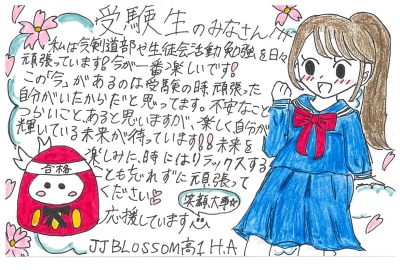 受験生のみなさんへ
私は今剣道部や生徒会活動勉強を日々
頑張っています!今が一番楽しいです!
この「今」があるのは受験の時頑張った
自分がいたからだと思ってます。不安なこと
つらいこと、あると思いますが、楽しく自分が
輝いている未来が待っています!!未来を
楽しみに、時にはリラックスする
こともわすれずに頑張って
ください
応援しています
笑顔大事☆
合格
JJ BLOSSOM高1 H.A